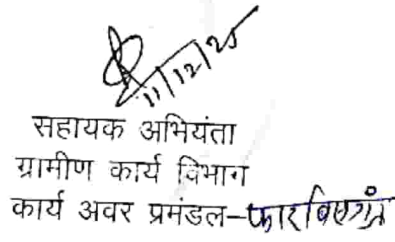 11/12/25
सहायक अभियंता
ग्रामीण कार्य विभाग
कार्य अवर प्रमंडल-फारबिसगंज